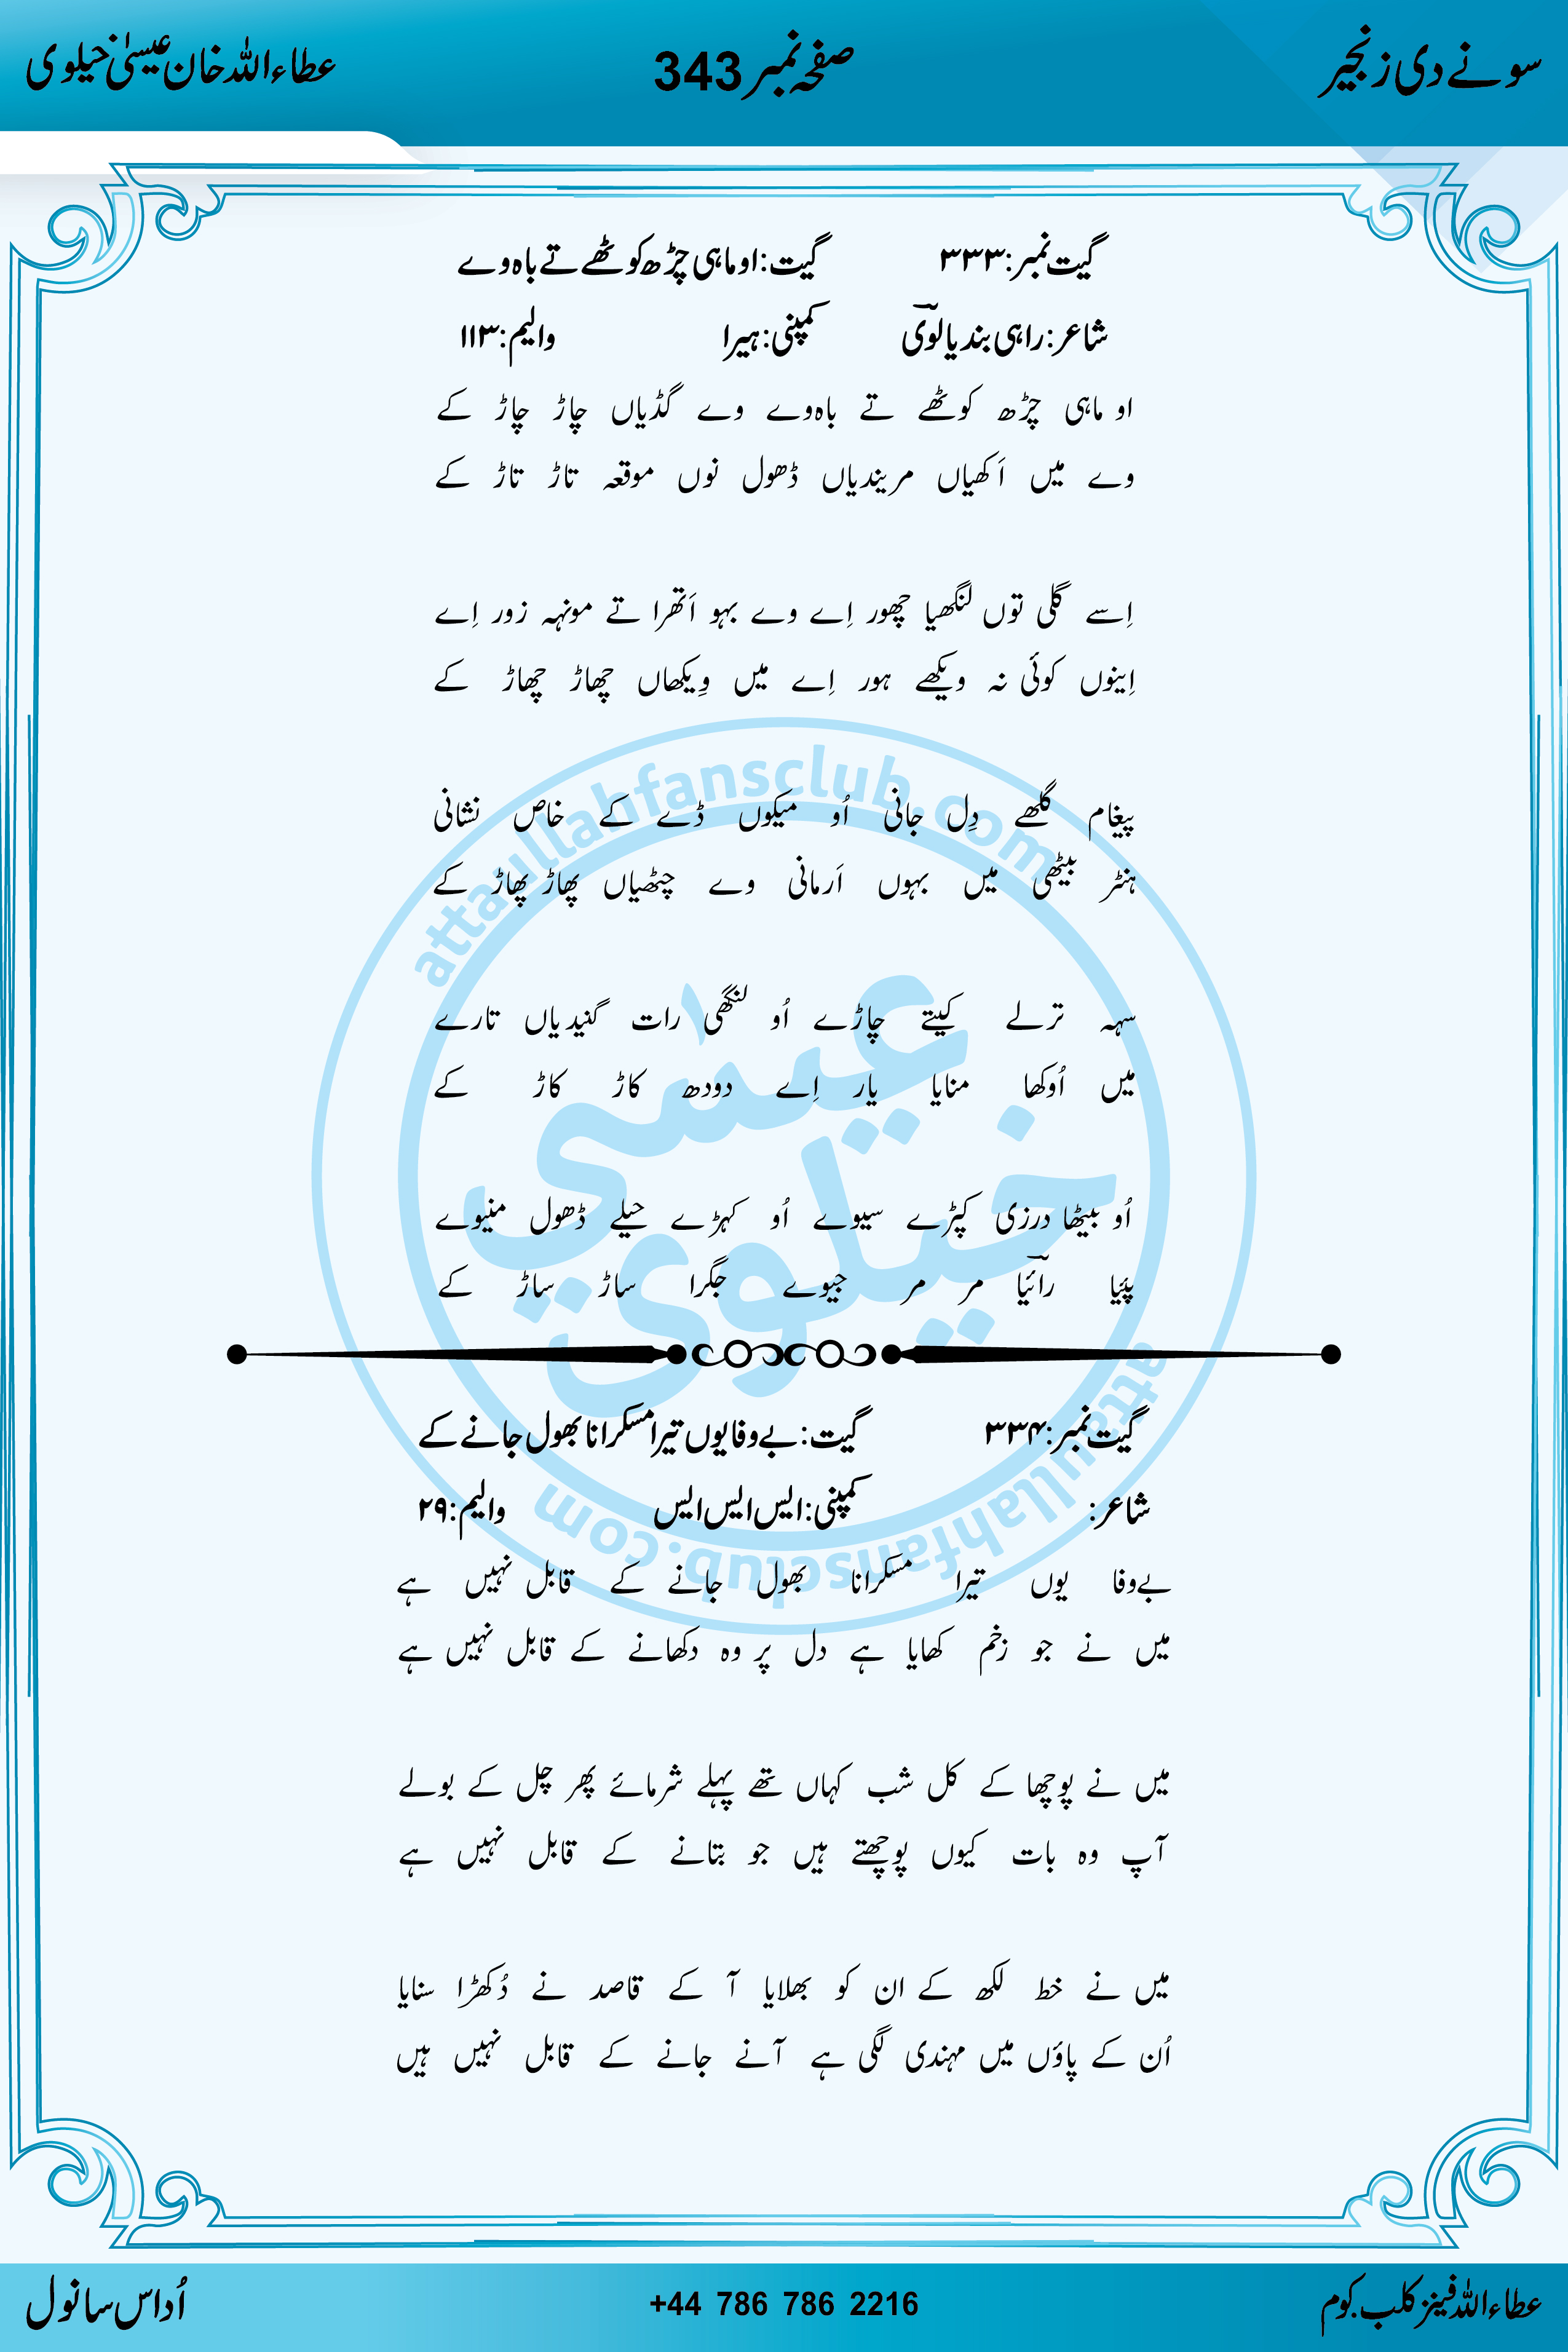 سونے دی زنجیر
صفحہ نمبر 343
عطاءاللہ خان عیسیٰ خیلوی
گیت نمبر: ۳۳۳ گیت: او ماہی چڑھ کوٹھے تے باہ وے
شاعر: راہی بندیالوی کمپنی: ہیرا والیم: ۱۱۳
او ماہی چڑھ کوٹھے تے باہ وے وے گڈیاں چاڑ چاڑ کے
وے میں اَکھیاں مریندیاں ڈھول نوں موقعہ تاڑ تاڑ کے
اِسے گلی توں لنگھیا چھور اِے وے بہو اَتھرا تے مونہہ زور اِے
اِینوں کوئی نہ ویکھے ہور اِے میں وِیکھاں چھاڑ چھاڑ کے
پیغام گلھے دِل جانی اُو میکوں ڈے کے خاص نشانی
ہنٹر بیٹھی میں بہوں اَرمانی وے چٹھیاں پھاڑ پھاڑ کے
سہہ ترلے کیتے چاڑے اُو لنگھی رات گنیدیاں تارے
میں اُوکھا منایا یار اِے دودھ کاڑ کاڑ کے
اُو بیٹھا درزی کپڑے سیوے اُو کہڑے حیلے ڈھول منیوے
پئیا رائیا مر مر جیوے جگرا ساڑ ساڑ کے
گیت نمبر: ۳۳۴ گیت: بے وفا یوں تیرا مسکرانا بھول جانے کے
شاعر: کمپنی: ایس ایس ایس والیم: ۲۹
بےوفا یوں تیرا مسکرانا بھول جانے کے قابل نہیں ہے
میں نے جو زخم کھایا ہے دل پر وہ دکھانے کے قابل نہیں ہے
میں نے پوچھا کے کل شب کہاں تھے پہلے شرمائے پھر چل کے بولے
آپ وہ بات کیوں پوچھتے ہیں جو بتانے کے قابل نہیں ہے
میں نے خط لکھ کے ان کو بھلایا آ کے قاصد نے دُکھڑا سنایا
اُن کے پاؤں میں مہندی لگی ہے آنے جانے کے قابل نہیں ہیں
attaullahfansclub.com
عیسٰی
خیلوی
attaullahfansclub.com
عطاءاللہ فینز کلب.کوم
+44 786 786 2216
اُداس سانول